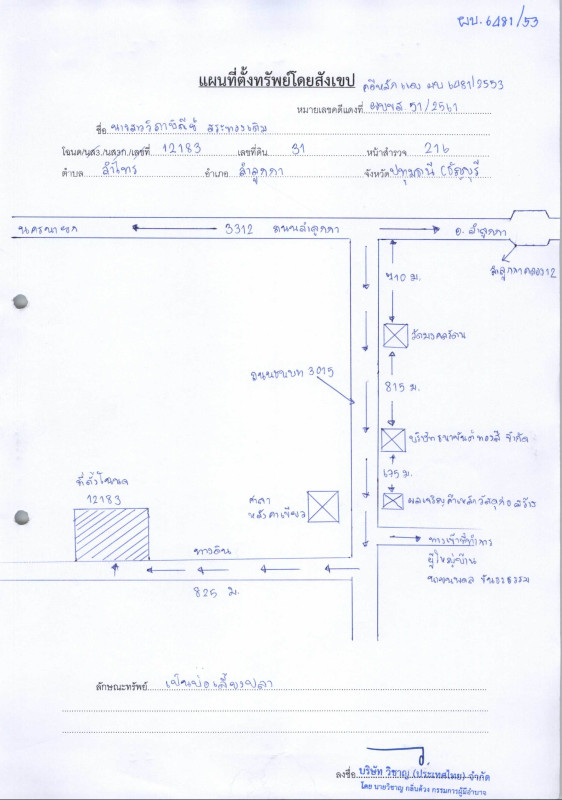 ผบ. 6481/53
แผนที่ตั้งทรัพย์โดยสังเขป
คดีหลักแดง ผบ 6481/2553
หมายเลขคดีแดงที่ ผบขส 51/2561
ชื่อ
โฉนด/นส3./นส3ก./เลขที่ 12183 เลขที่ดิน 31 หน้าสำรวจ 216
ตำบล ลำไทร อำเภอ ลำลูกกา จังหวัด ปทุมธานี (ธัญบุรี)
นครนายก 3312 ถนนลำลูกกา อ. ลำลูกกา
ลำลูกกาคลอง 12
710 ม.
วัดมงคลรัตน
ถนนชนบท 3015
815 ม.
บริษัท ธนาพันธ์ทองสี จำกัด
175 ม.
ที่ตั้งโฉนด
12183
ศาลา
หลังคาเขียว
ผลเจริญค้าเหล็กวัสดุก่อสร้าง
ทางดิน
ทางเข้าที่ทำการ
ผู้ใหญ่บ้าน
825 ม.
ลักษณะทรัพย์ เป็นบ่อเลี้ยงปลา
ลงชื่อ บริษัท วิชาญ (ประเทศไทย) จำกัด
โดย นายวิชาญ กลิ่นด้วง กรรมการผู้มีอำนาจ